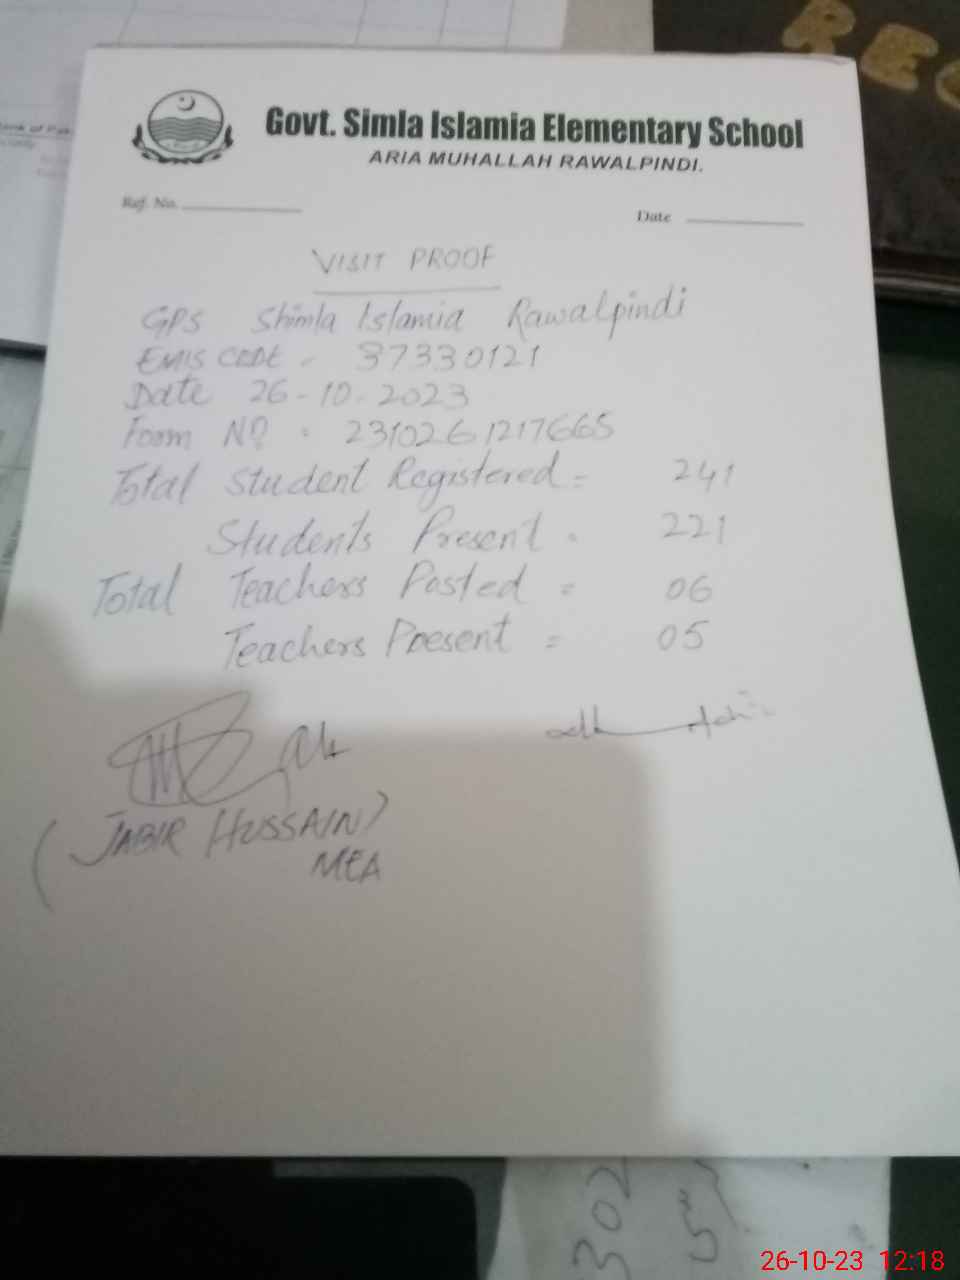 Govt. Simla Islamia Elementary School
ARIA MUHALLAH RAWALPINDI.
Ref. No.
Date
VISIT PROOF
GPS Shimla Islamia Rawalpindi
EMIS CODE - 37330121
Date 26-10-2023
Form NO. 2310261217665
Total Student Registered = 241
Students Present = 221
Total Teachers Posted = 06
Teachers Present = 05
(JABIR HUSSAIN)
MEA
REC
302
26-10-23 12:18